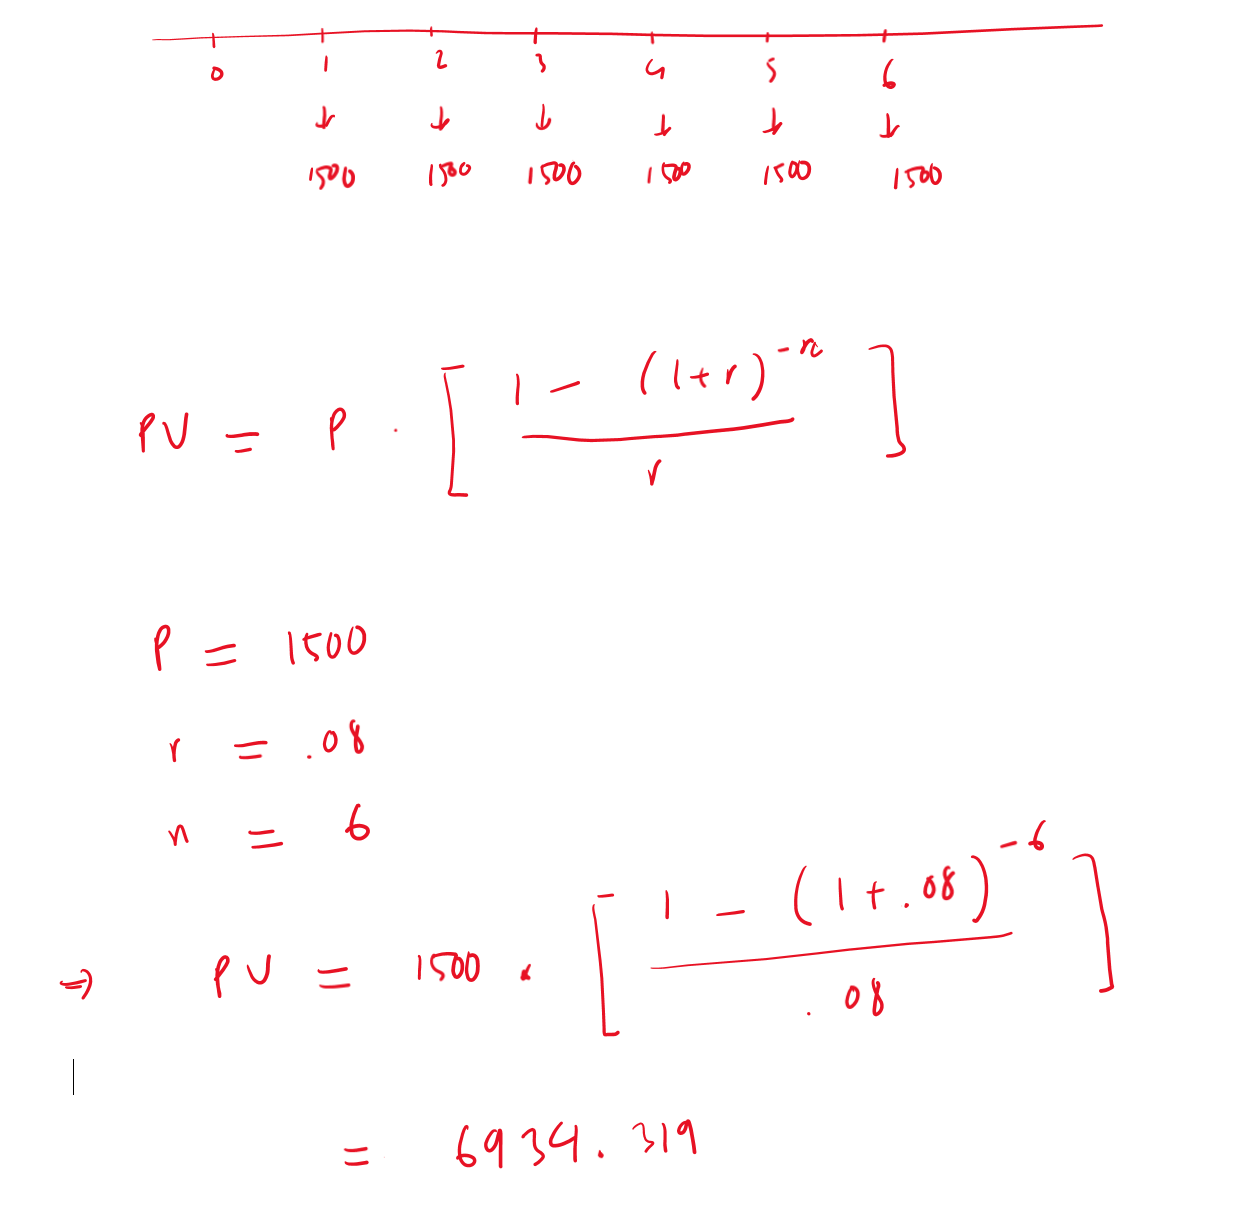 0 1 2 3 4 5 6
↓ ↓ ↓ ↓ ↓ ↓
1500 1500 1500 1500 1500 1500
PV = P · [ (1 - (1+r)^-n) / r ]
P = 1500
r = .08
n = 6
⇒ PV = 1500 · [ (1 - (1+.08)^-6) / .08 ]
= 6934.319